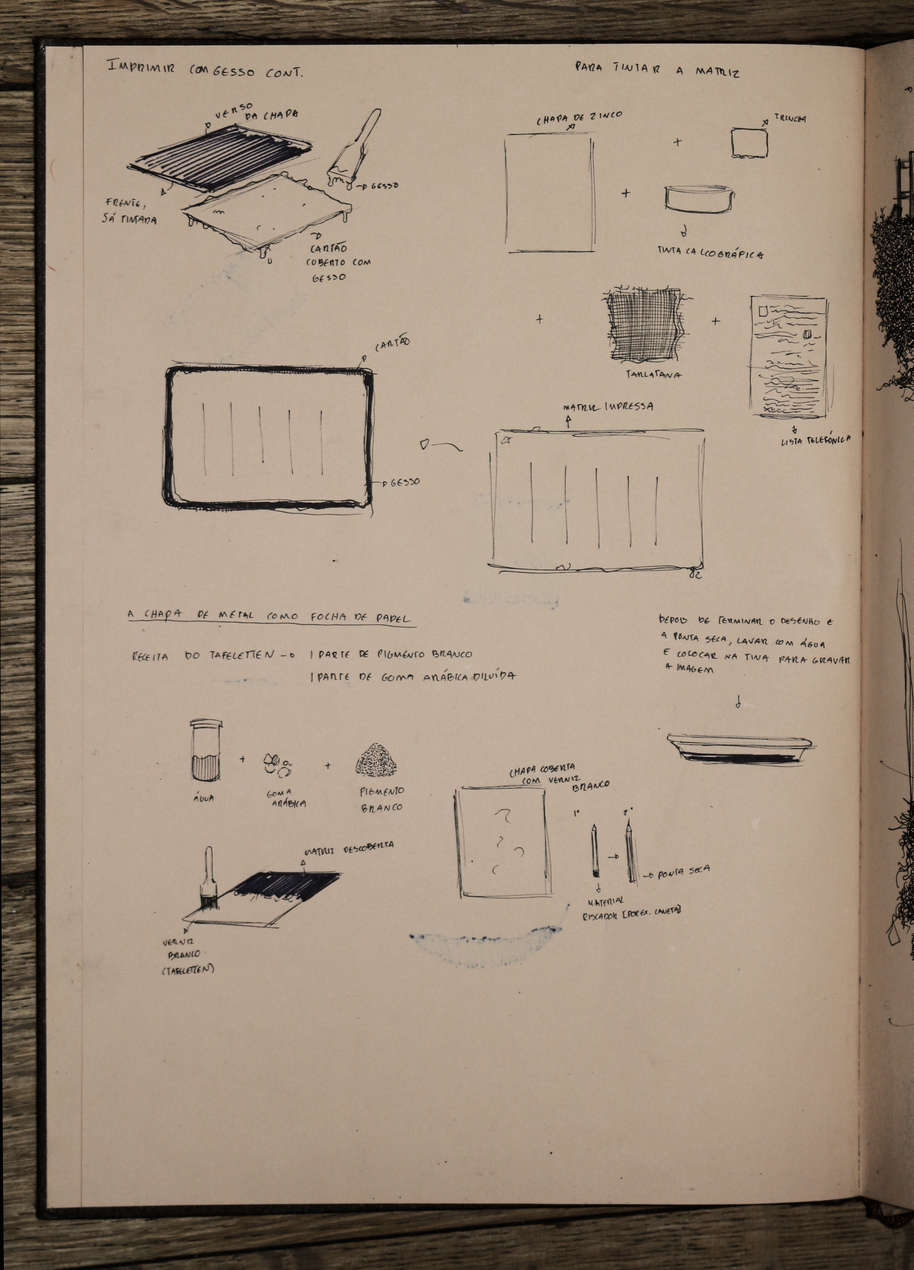 IMPRIMIR COM GESSO CONT.
VERSO
DA CHAPA
GESSO
FRENTE,
JÁ TINTADA
CARTÃO
COBERTO COM
GESSO
CARTÃO
GESSO
PARA TINTAR A MATRIZ
CHAPA DE ZINCO
+
TRINCHA
+
TINTA CALCOGRÁFICA
+
TARLATANA
+
LISTA TELEFÓNICA
MATRIZ IMPRESSA
A CHAPA DE METAL COMO FOLHA DE PAPEL
RECEITA DO TAFELETTEN → 1 PARTE DE PIGMENTO BRANCO
1 PARTE DE GOMA ARÁBICA DILUÍDA
+
+
ÁGUA
GOMA
ARÁBICA
PIGMENTO
BRANCO
MATRIZ DESCOBERTA
VERNIZ
BRANCO
(TAFELETTEN)
CHAPA COBERTA
COM VERNIZ
BRANCO
1º
2º
PONTA SECA
MATERIAL
RISCADOR [POR EX. CANETA]
DEPOIS DE TERMINAR O DESENHO E
A PONTA SECA, LAVAR COM ÁGUA
E COLOCAR NA TINA PARA GRAVAR
A IMAGEM